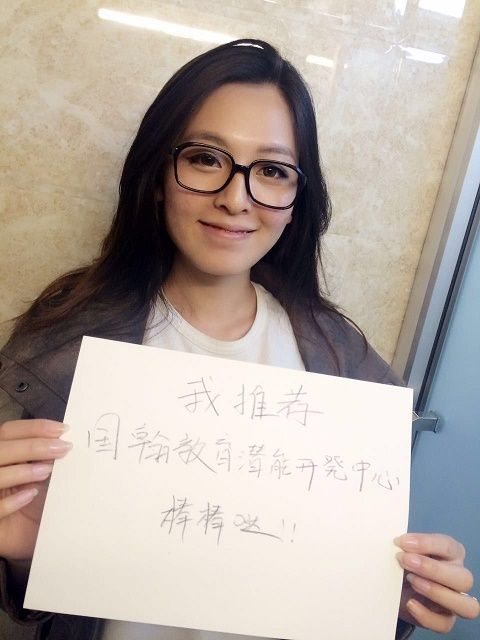 我推荐
国翰教育潜能开発中心
棒棒哒!!